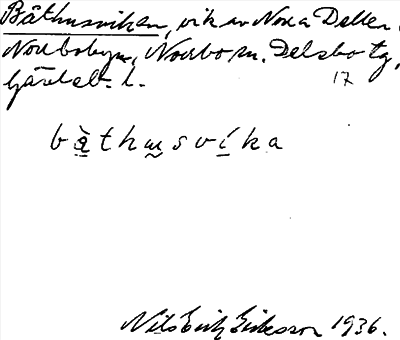 Båthusviken, vik av Norra Dellen.
Norrbobyn, Norrbo sn. Delsbo tg,
Gävleb. l. 17
bàthusvíka
Nils Erik Eriksson 1936.